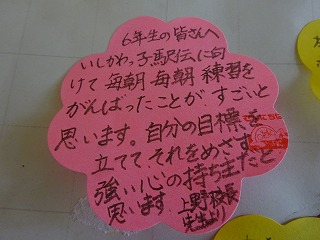 6年生の皆さんへ
いしかわっ子駅伝に向
けて毎朝毎朝練習を
がんばったことが、すごいと
思います。自分の目標を
立ててそれをめざす
強い心の持ち主だと
思います 上野校長
先生より